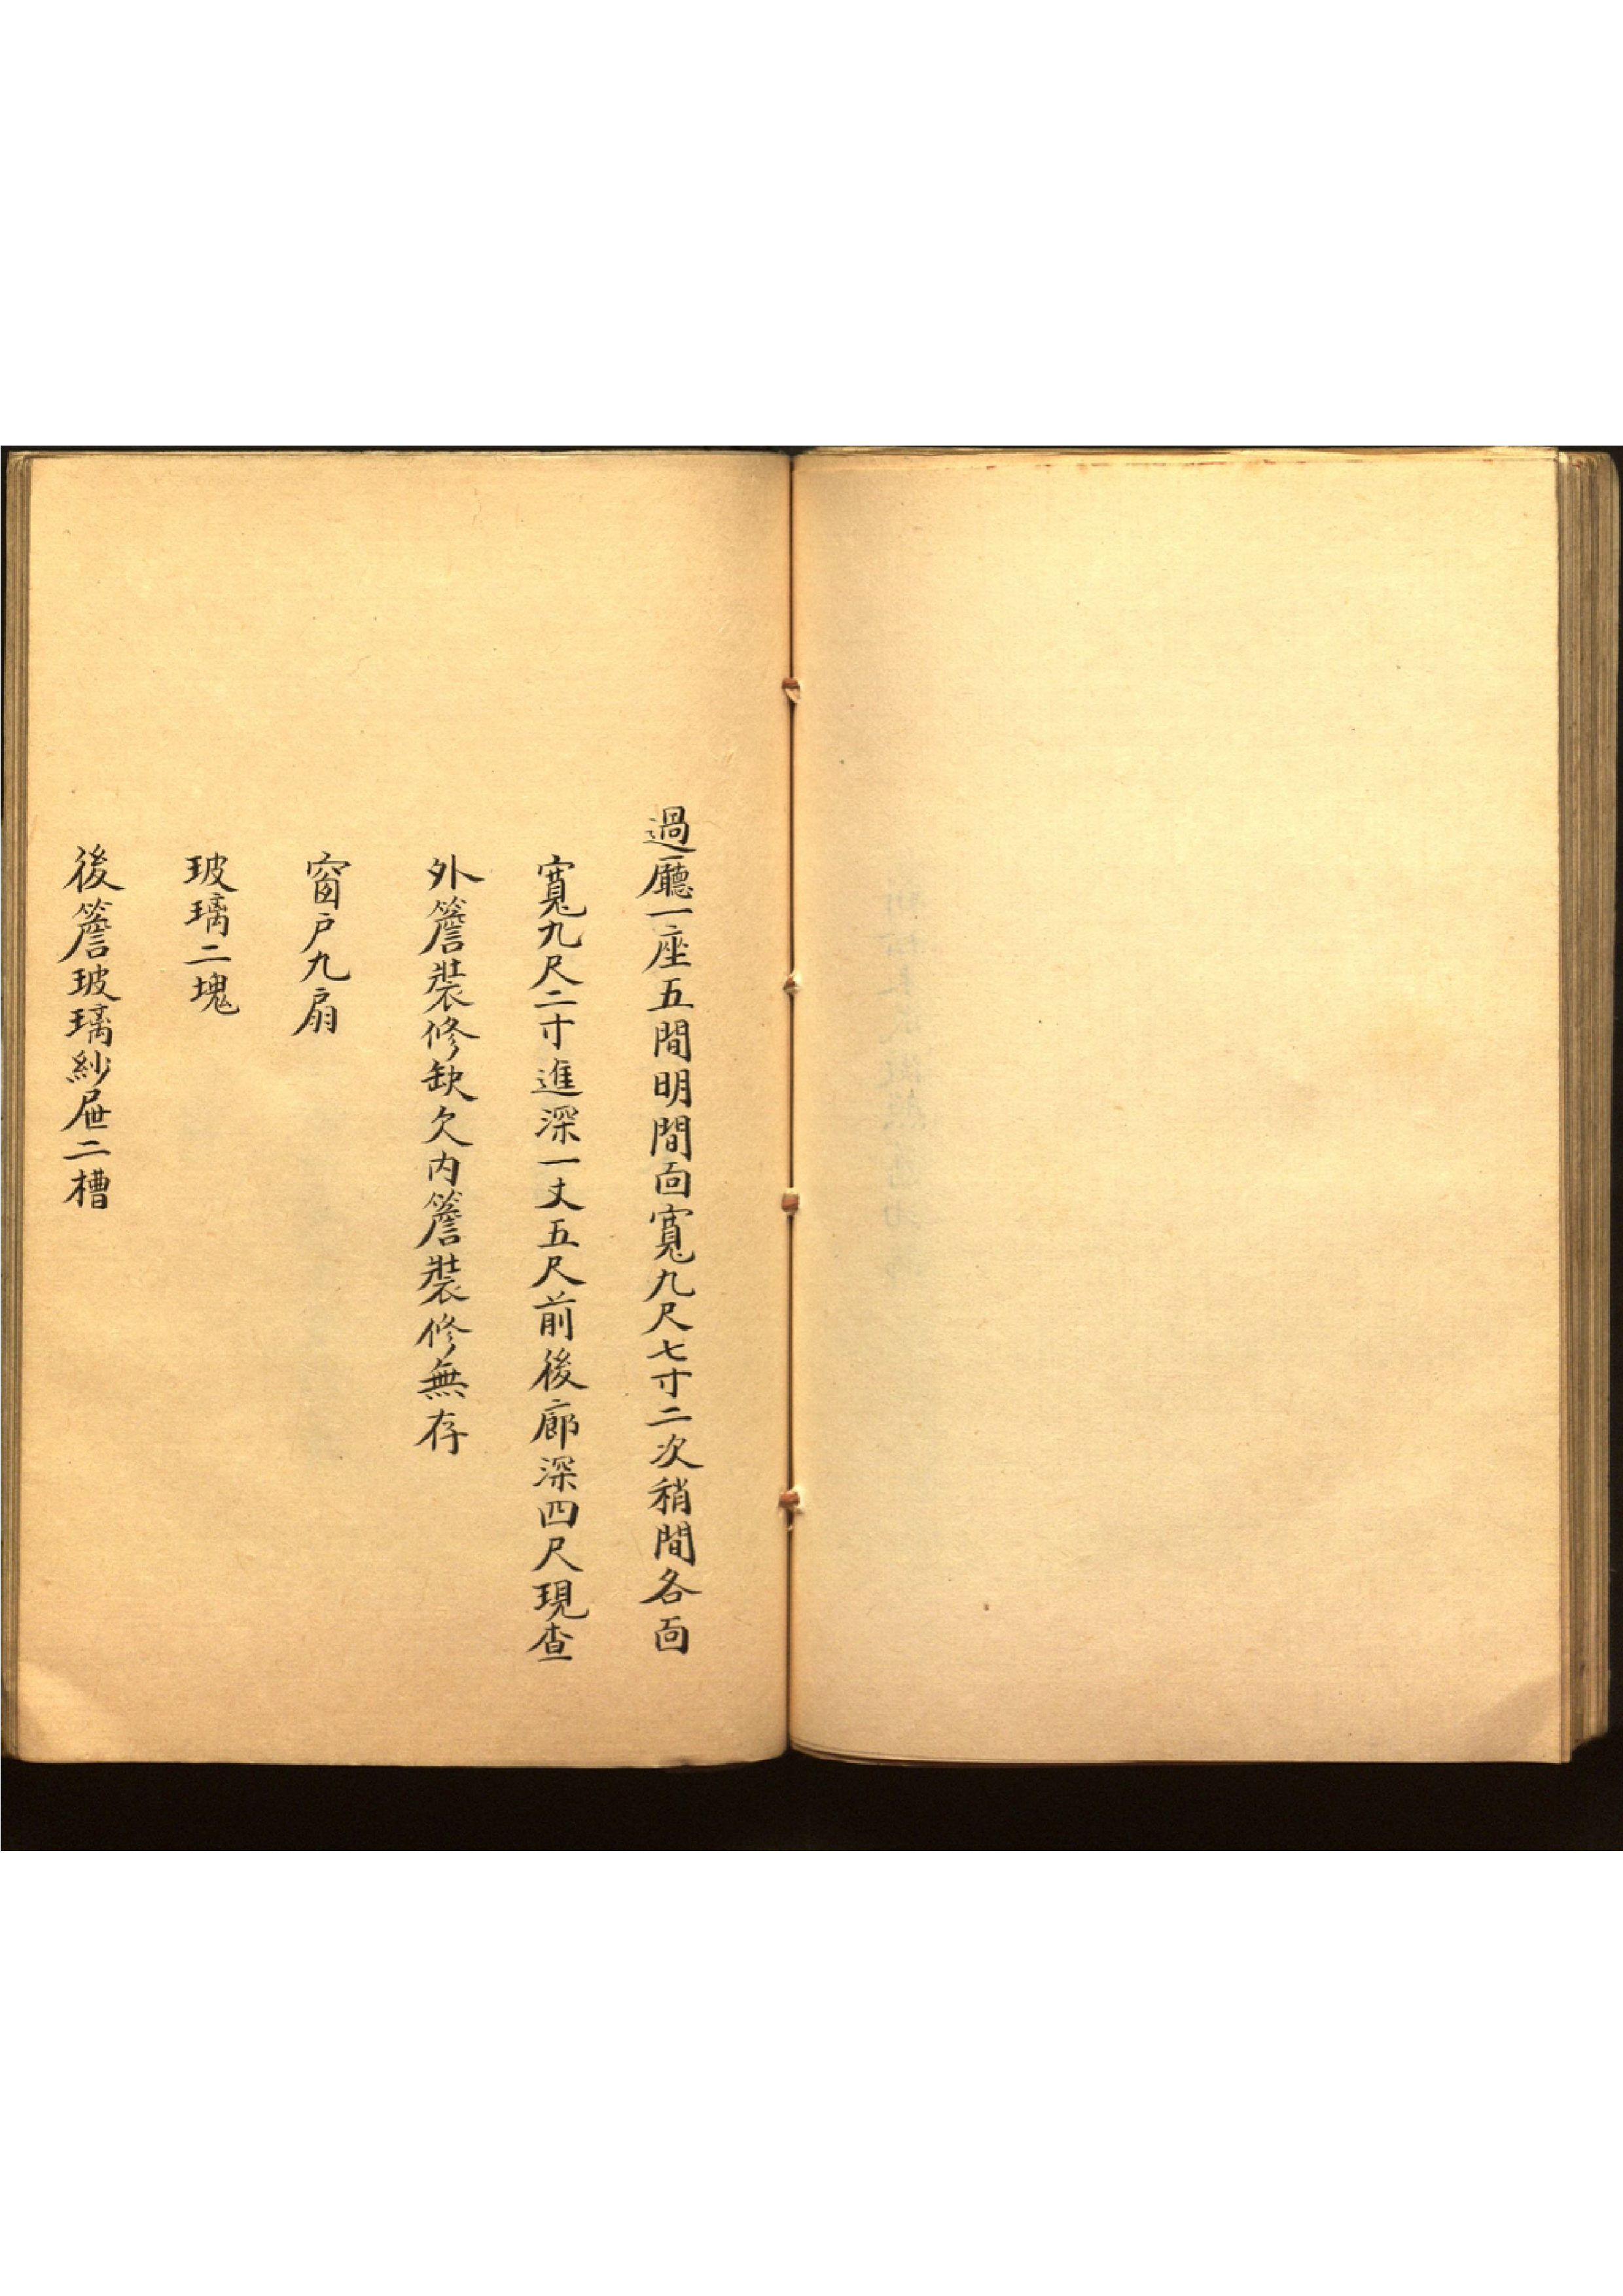 過廳一座五間明間面寬九尺七寸二次稍間各面
寬九尺二寸進深一丈五尺前後廊深四尺現查
外簷裝修缺欠內簷裝修無存
窗户九扇
玻璃二塊
後簷玻璃紗屜二槽